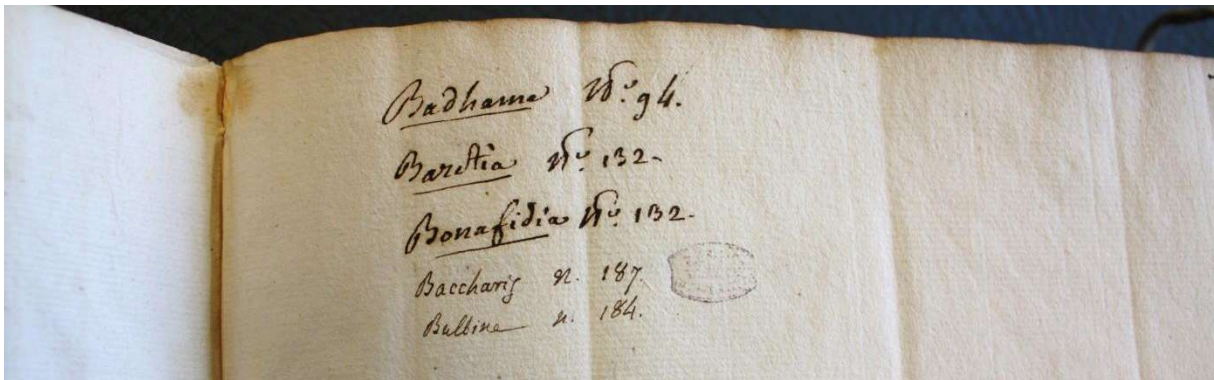 Badhame N.º 94.
Baretia N.º 132.
Bonafidia N.º 132.
Baccharis n. 187.
Bulbine n. 184.